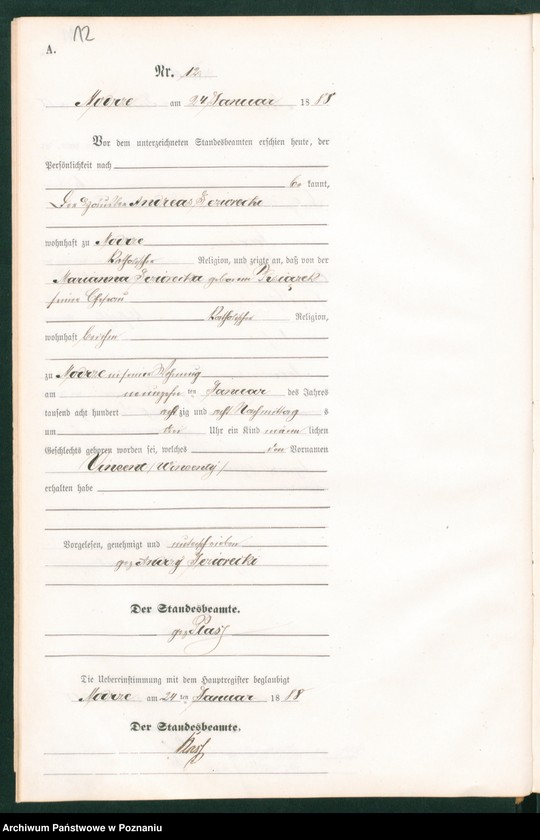 12
A.
Nr. 12
Modrze am 24 Januar 1888
Vor dem unterzeichneten Standesbeamten erschien heute, der
Persönlichkeit nach
be kannt,
Der Andreas
wohnhaft zu Modrze
Katholischer Religion, und zeigte an, daß von der
Marianna geborenen
seiner Ehefrau
Katholischer Religion,
wohnhaft bei ihm
zu Modrze in seiner Wohnung
am neunzehn ten Januar des Jahres
tausend acht hundert acht zig und acht Nachmittag s
um drei Uhr ein Kind männ lichen
Geschlechts geboren worden sei, welches den Vornamen
Vincent (Wincenty)
erhalten habe
Vorgelesen, genehmigt und unterschrieben
gez Andrzej
Der Standesbeamte.
gez
Die Uebereinstimmung mit dem Hauptregister beglaubigt
Modrze am 24 ten Januar 1888
Der Standesbeamte.
Archiwum Państwowe w Poznaniu